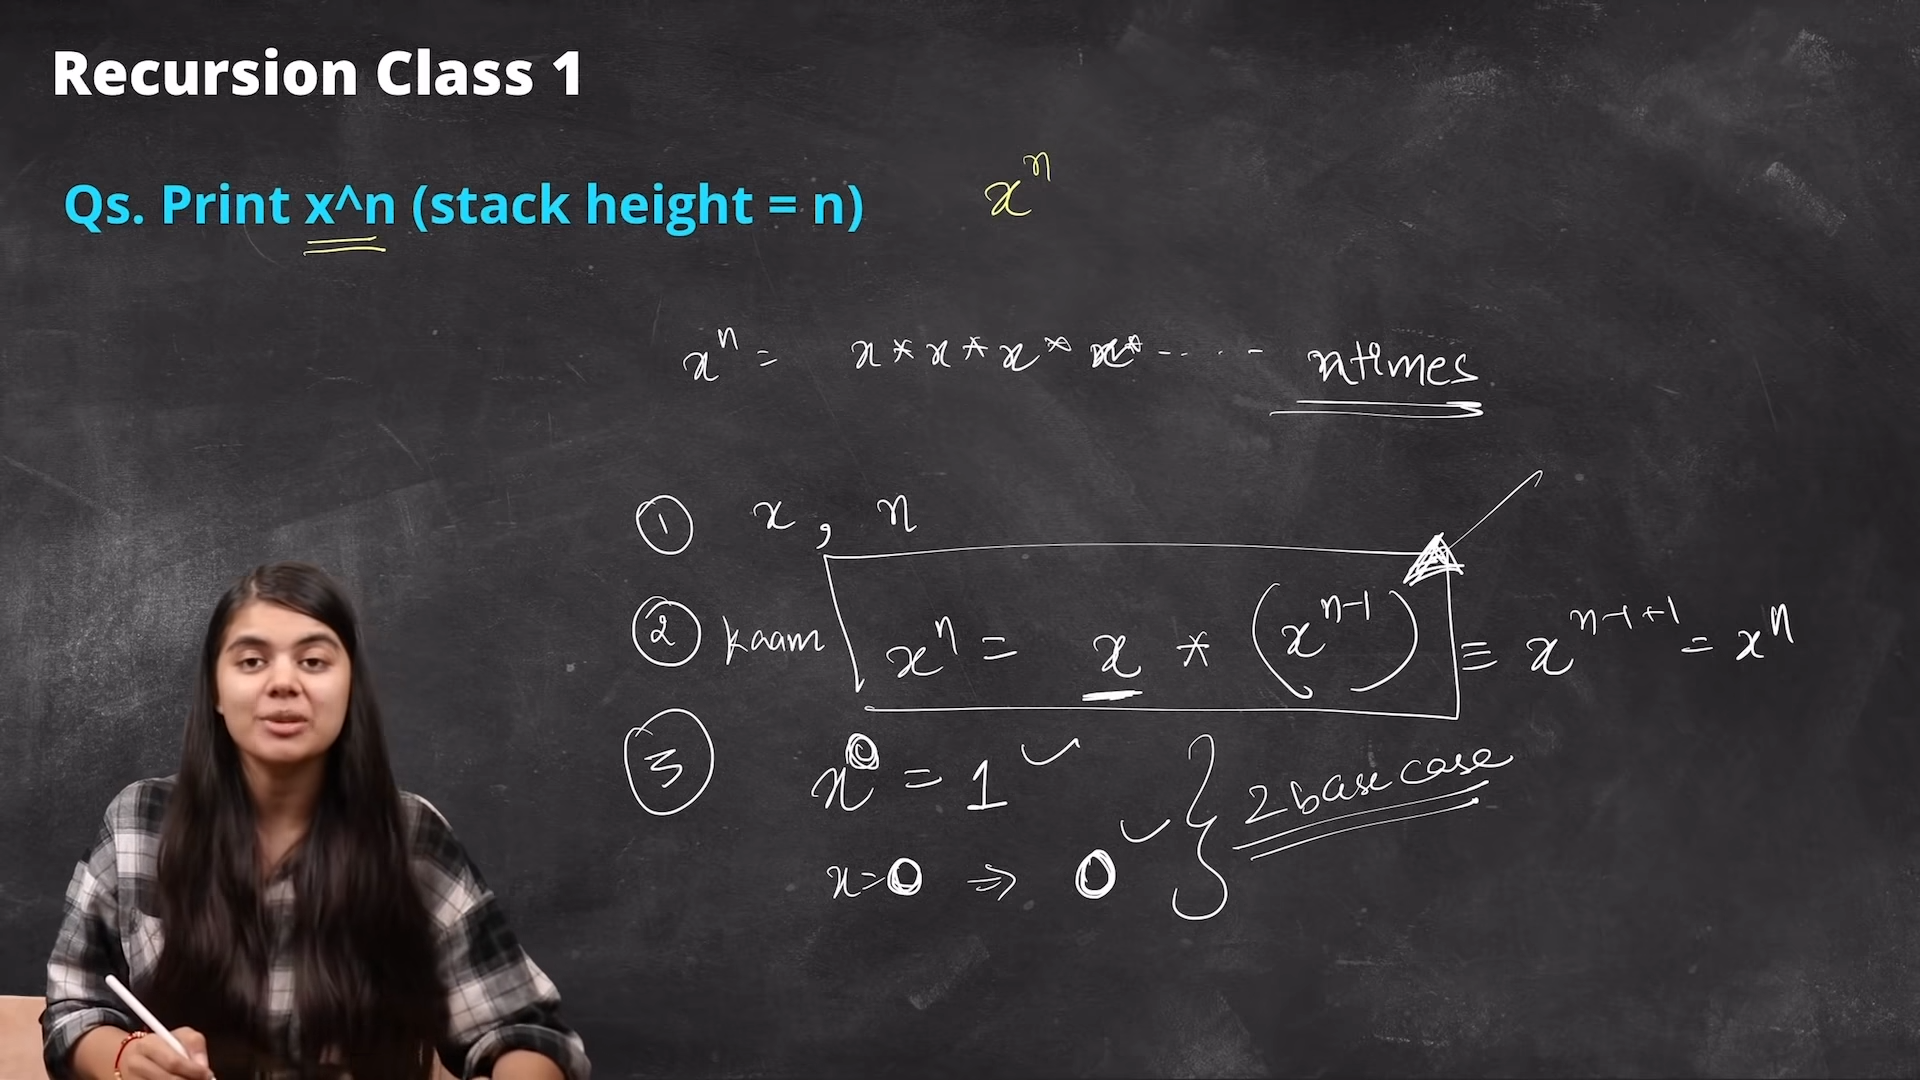 Recursion Class 1
Qs. Print x^n (stack height = n) xⁿ
xⁿ = x * x * x * x* - - - - - ntimes
① x , n
② kaam xⁿ = x * (xⁿ⁻¹) ≡ xⁿ⁻¹⁺¹ = xⁿ
③ x⁰ = 1 ✓
x=0 ⇒ 0 ✓ } 2 base case